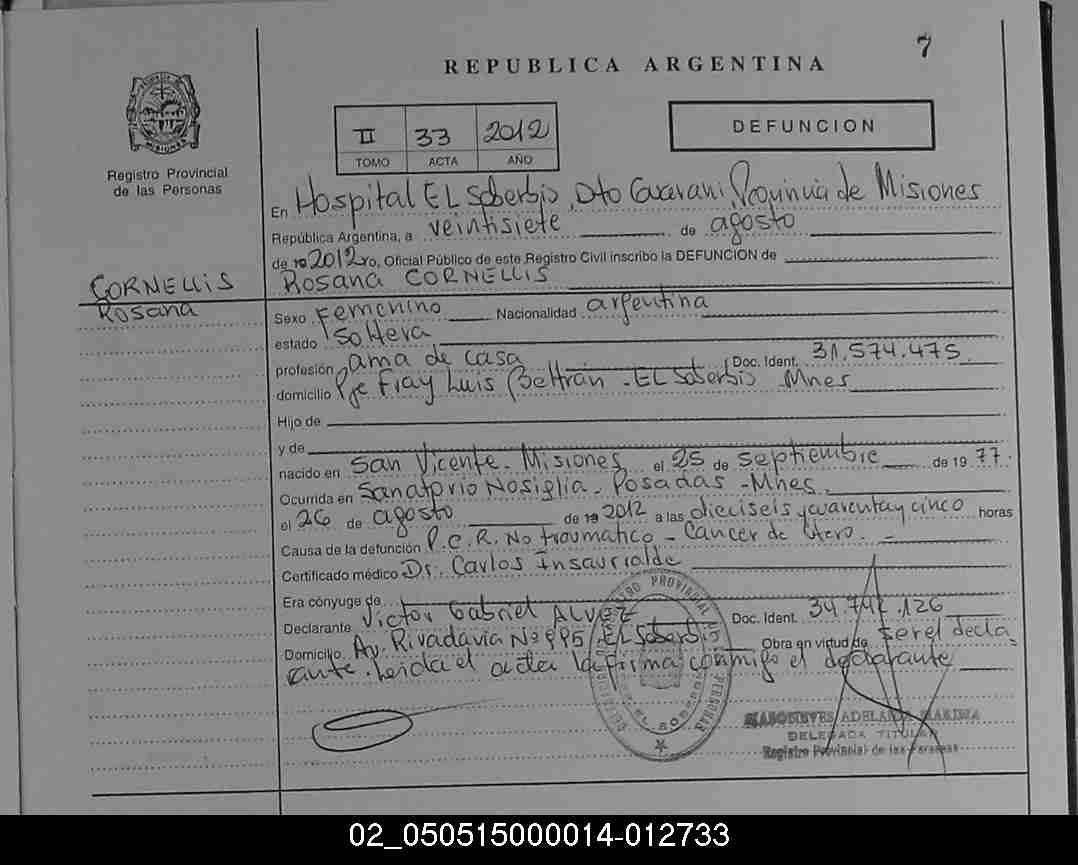 7
REPUBLICA ARGENTINA
II 33 2012
TOMO ACTA AÑO
DEFUNCION
Registro Provincial
de las Personas
En Hospital EL Soberbio, Dto Guaraní, Provincia de Misiones
República Argentina, a veintisiete de agosto
de 19 2012 yo, Oficial Público de este Registro Civil inscribo la DEFUNCION de
CORNELLIS Rosana CORNELLIS
Rosana
Sexo Femenino Nacionalidad argentina
estado Soltera
profesión ama de casa Doc. Ident. 31.574.475
domicilio Pje Fray Luis Beltrán - EL Soberbio Mnes
Hijo de
y de
nacido en San Vicente - Misiones el 25 de septiembre de 1977.
Ocurrida en Sanatorio Nosiglia - Posadas - Mnes.
el 26 de agosto de 19 2012 a las dieciseis y cuarenta y cinco horas
Causa de la defunción P.C.R. No traumático - Cancer de Utero.
Certificado médico Dr. Carlos Insaurralde
Era cónyuge de
Declarante Victor Gabriel ALVEZ Doc. Ident. 34.742.126
Domicilio Av. Rivadavia Nº 995 EL Soberbio Obra en virtud de ser el decla-
rante. Leída el acta la firma conmigo el declarante
REGISTRO PROVINCIAL DE LAS PERSONAS
ADELAIDA MARINA
DELEGADA TITULAR
Registro Provincial de las Personas
02_050515000014-012733